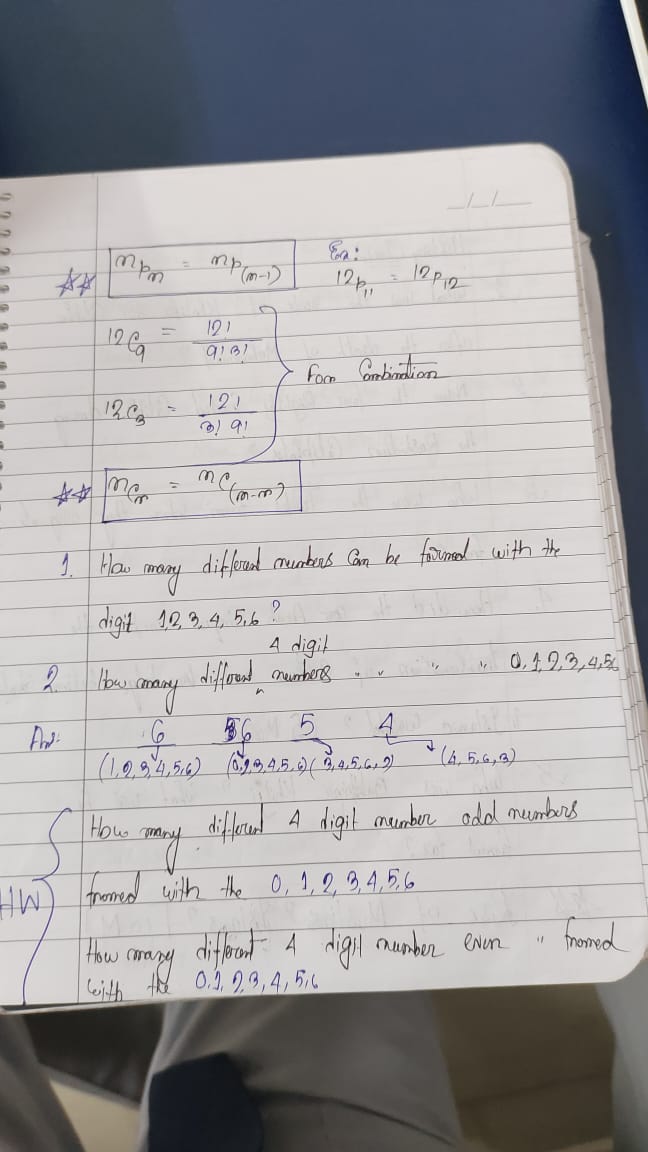 _/_/__
** nPn = nP(n-1) Ex: 12P11 = 12P12
12C9 = 12! / 9! 3!
For Combination
12C3 = 12! / 3! 9!
** nCr = nC(n-r)
1. How many different numbers Can be formed with the
digit 1,2,3,4,5,6 ?
4 digit
2. How many different ^ numbers " " " " 0,1,2,3,4,5,6
Ans: 6 6 5 4
(1,2,3,4,5,6) (0,2,3,4,5,6) (3,4,5,6,2) (4,5,6,3)
How many different 4 digit number odd numbers
HW fromed with the 0, 1, 2, 3, 4, 5, 6
How many different 4 digit number even " fromed
with the 0,1,2,3,4,5,6